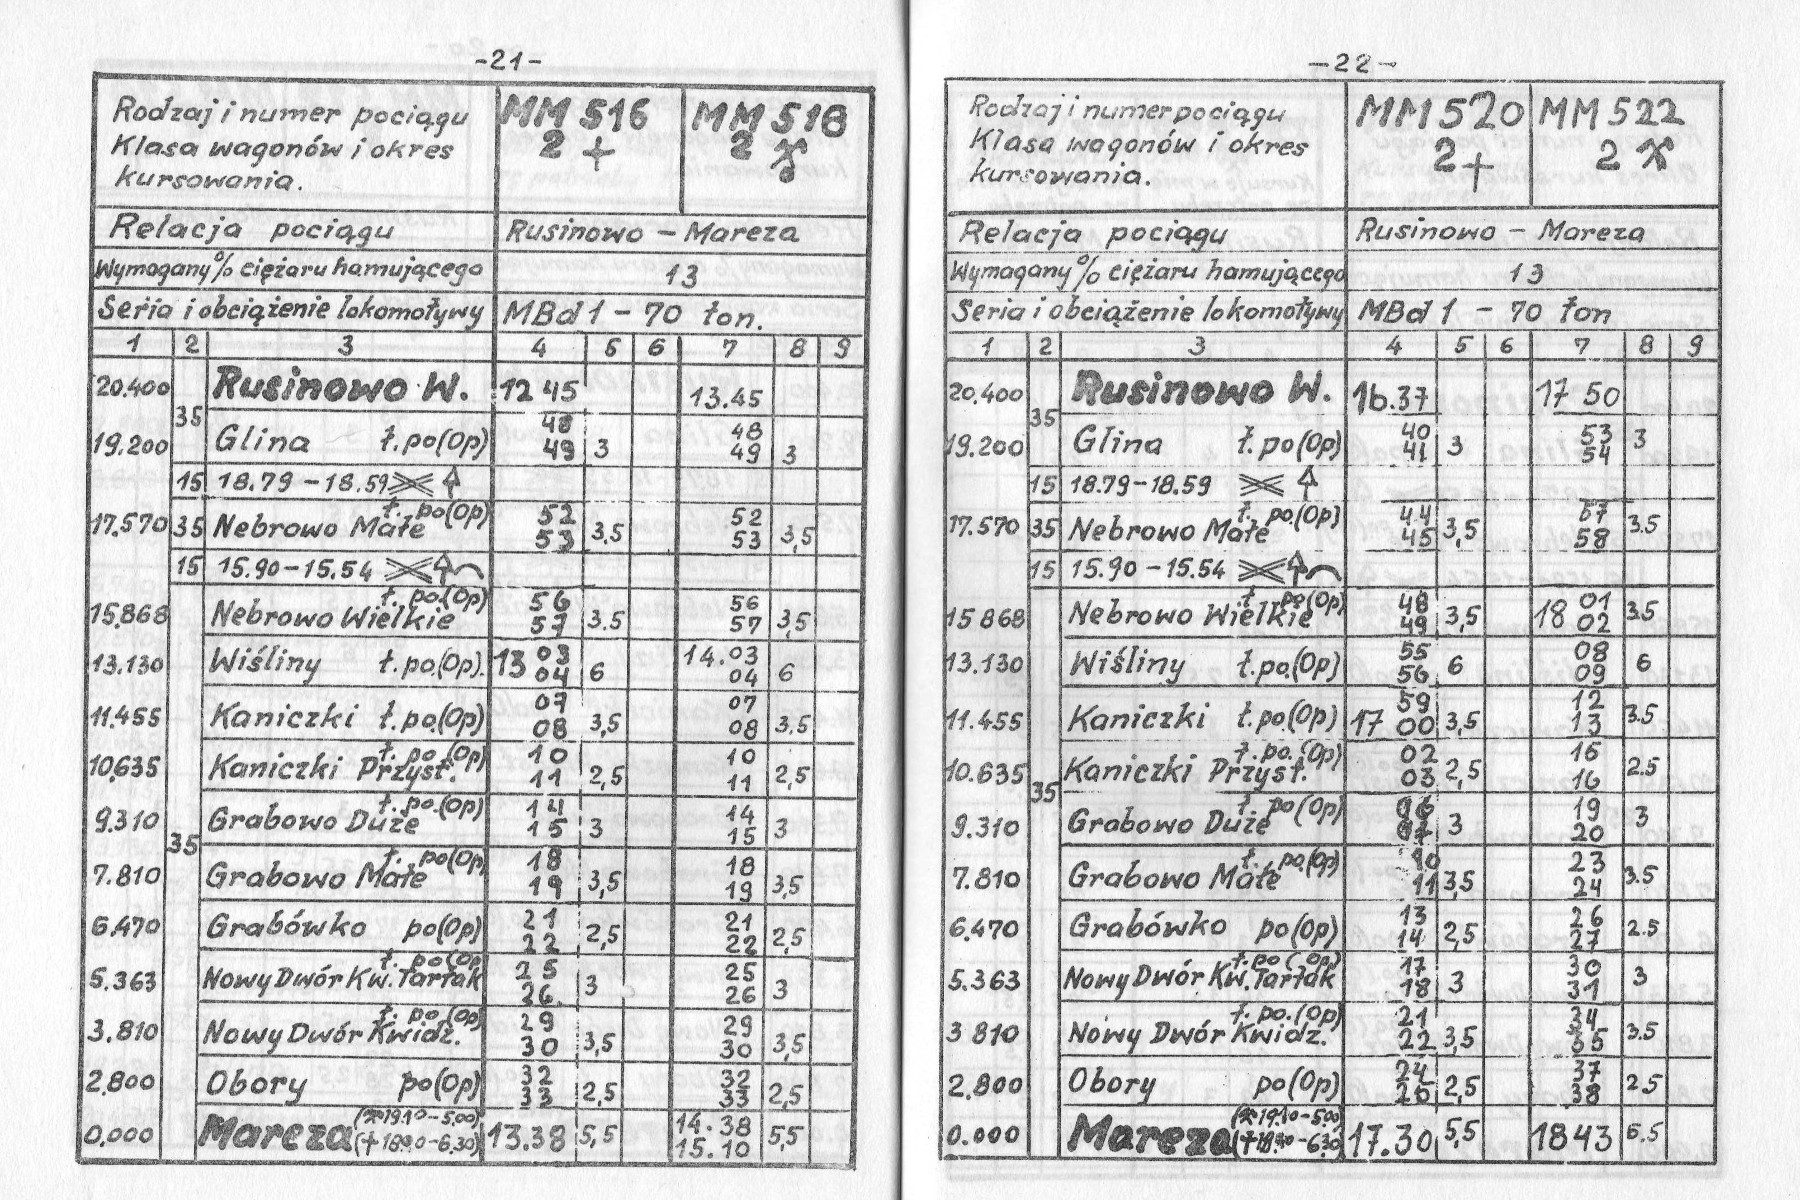 -21-
Rodzaj i numer pociągu MM 516 MM 518
Klasa wagonów i okres 2 + 2
kursowania.
Relacja pociągu Rusinowo - Mareza
Wymagany % ciężaru hamującego 13
Seria i obciążenie lokomotywy MBd1 - 70 ton.
1 2 3 4 5 6 7 8 9
20.400 Rusinowo W. 12 45 13.45
35
48 48
19.200 Glina ł.po(Op) 49 3 49 3
15 18.79 - 18.59
ł. po(Op) 52 52
17.570 35 Nebrowo Małe 53 3,5 53 3,5
15 15.90 - 15.54
ł. po.(Op) 56 56
15,868 Nebrowo Wielkie 57 3.5 57 3,5
03 14.03
13.130 Wiśliny ł.po.(Op). 13 04 6 04 6
07 07
11.455 Kaniczki ł.po.(Op) 08 3,5 08 3.5
ł. po.(Op) 10 10
10.635 Kaniczki Przyst. 11 2,5 11 2,5
ł. po.(Op) 14 14
9.310 Grabowo Duże 15 3 15 3
35
ł. po(Op) 18 18
7.810 Grabowo Małe 19 3,5 19 3,5
21 21
6.470 Grabówko po(Op) 22 2,5 22 2,5
ł. po(Op) 25 25
5.363 Nowy Dwór Kw. Tartak 26. 3 26 3
ł. po.(Op) 29 29
3.810 Nowy Dwór Kwidz. 30 3,5 30 3,5
32 32
2.800 Obory po(Op) 33 2,5 33 2,5
14.38
0.000 Mareza 13.38 5,5 15.10 5,5
-22-
Rodzaj i numer pociągu MM 520 MM 522
Klasa wagonów i okres 2+ 2
kursowania.
Relacja pociągu Rusinowo - Mareza
Wymagany % ciężaru hamującego 13
Seria i obciążenie lokomotywy MBd1 - 70 ton
1 2 3 4 5 6 7 8 9
20.400 Rusinowo W. 16.37 17 50
35
40 53
19.200 Glina ł.po(Op) 41 3 54 3
15 18.79-18.59
ł. po.(Op) 44 57
17.570 35 Nebrowo Małe 45 3,5 58 3.5
15 15.90 - 15.54
ł. po(Op) 48 01
15 868 Nebrowo Wielkie 49 3,5 18 02 3.5
55 08
13.130 Wiśliny ł.po.(Op) 56 6 09 6
59 12
11.455 Kaniczki ł.po.(Op) 17 00 3,5 13 3.5
ł. po.(Op) 02 16
10.635 Kaniczki Przyst. 03 2,5 16 2.5
35
ł. po(Op) 19
9.310 Grabowo Duże 3 20 3
ł. po(Op) 10 23
7.810 Grabowo Małe 11 3,5 24 3.5
13 26
6.470 Grabówko po(Op) 14 2,5 27 2.5
ł.po(Op) 17 30
5.363 Nowy Dwór Kw. Tartak 18 3 31 3
ł. po.(Op) 21 34
3 810 Nowy Dwór Kwidz. 22 3,5 35 3.5
24 37
2.800 Obory po(Op) 2,5 38 2.5
0.000 Mareza 17.30 5,5 18 43 5.5